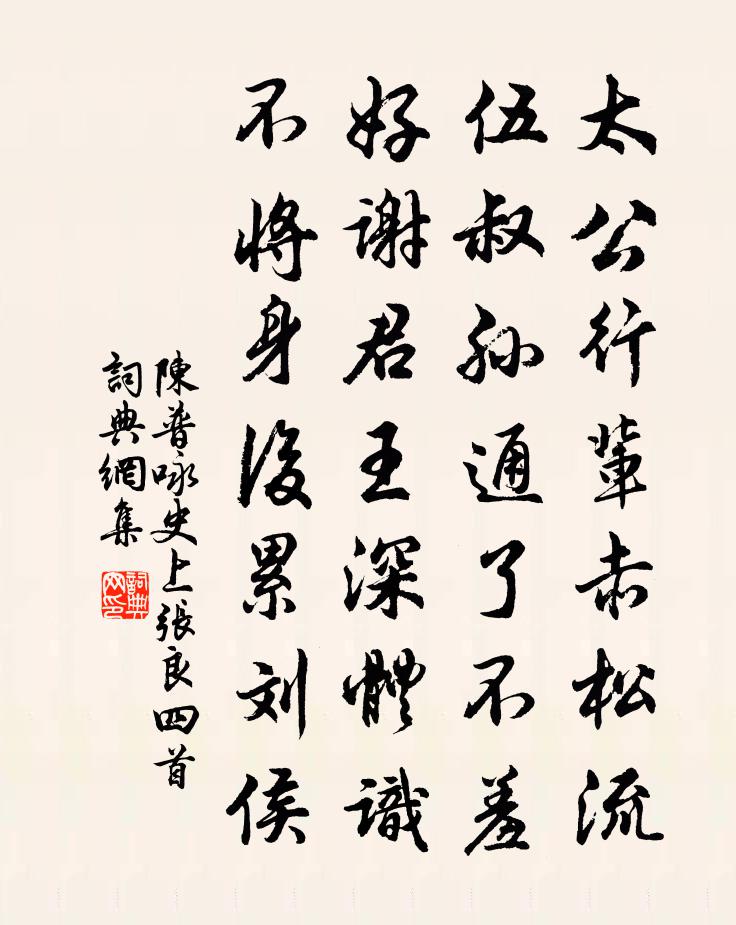 太公行輩赤松流
伍叔孙通了不羞
好谢君王深體識
不將身後累刘侯
陳普咏史上張良四首
詞典網集
詞典
网印